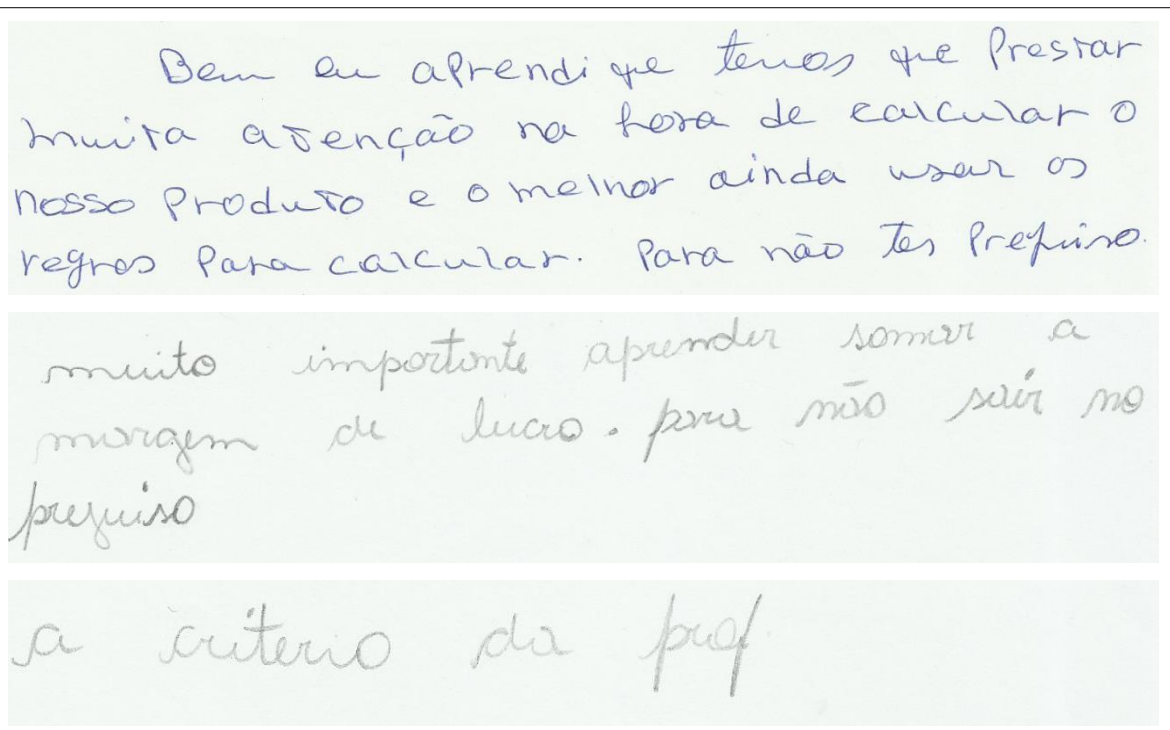 Bem eu aprendi que temos que Prestar
muita atenção na hora de calcular o
nosso Produto e o melhor ainda usar os
regras Para calcular. Para não ter Prejuiso.
muito importante aprender somar a
margem de lucro. para não sair no
prejuiso
a criterio da prof